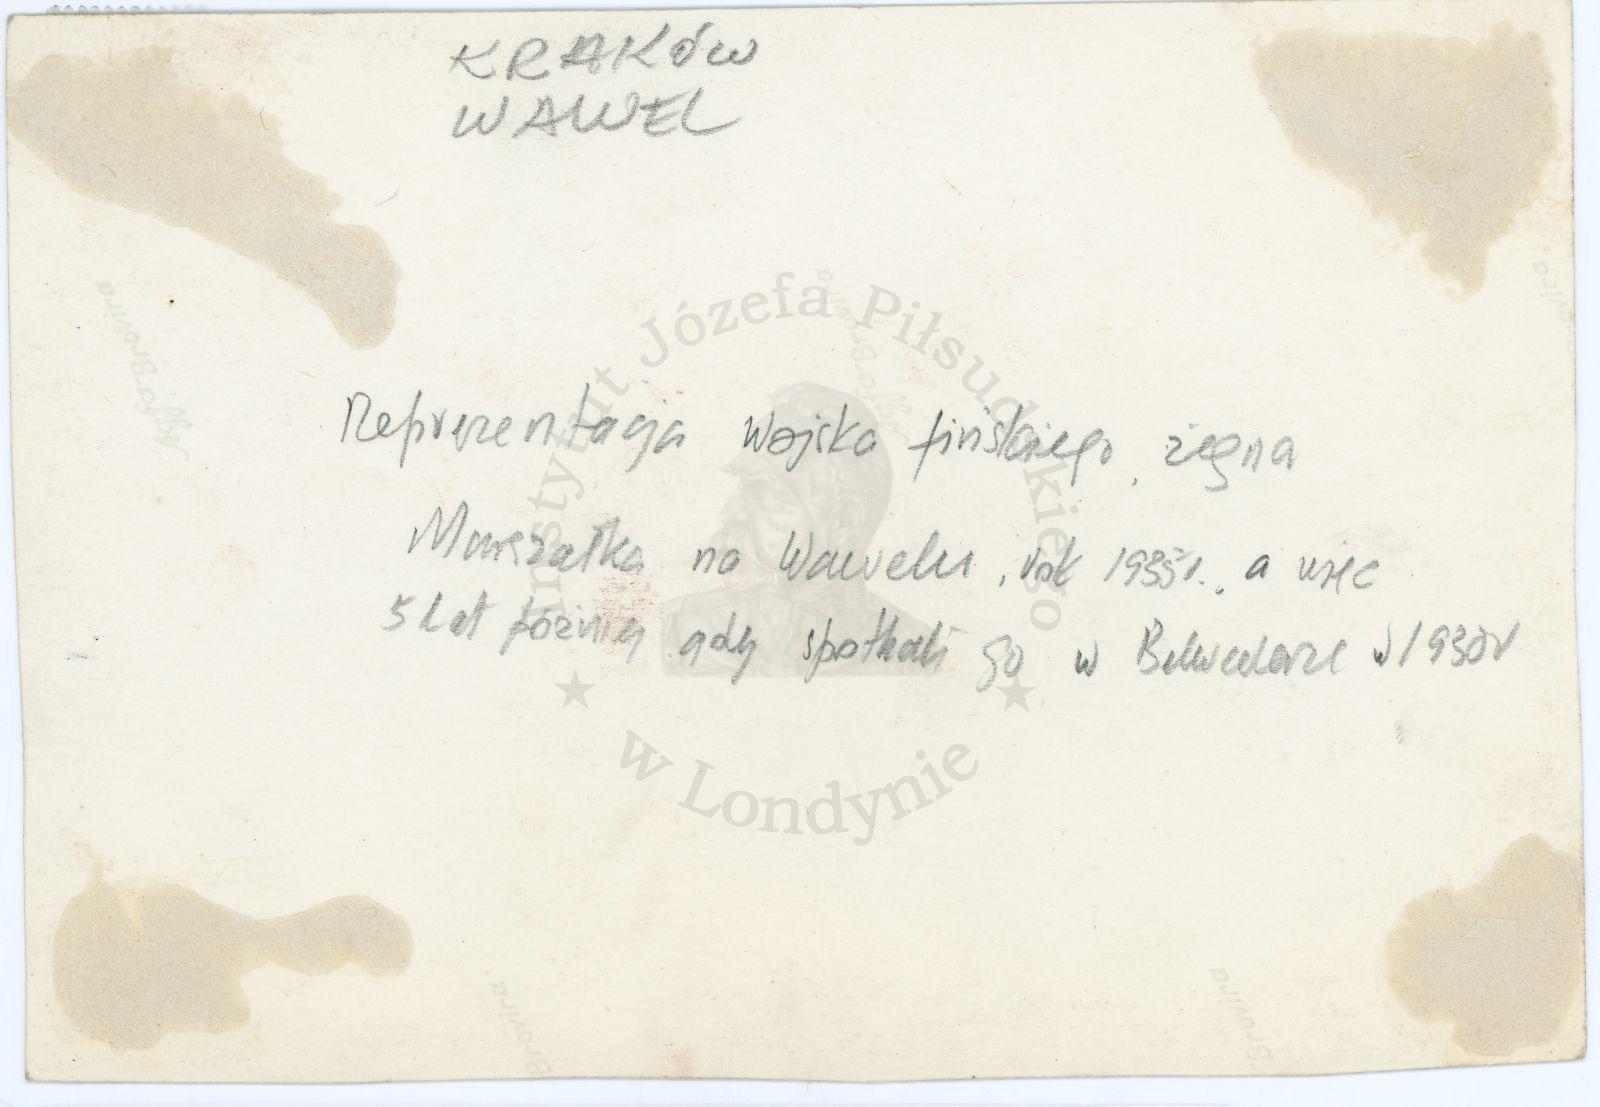 KRAKÓW
WAWEL
Instytut Józefa Piłsudskiego
Reprezentacja Wojska fińskiego, żegna
Marszałka na Wawelu, rok 1935r., a więc
5 lat później gdy spotkali go w Belwederze w 1930r
w Londynie
Agfa Brovira
Agfa Brovira
Brovira
Brovira
Brovira